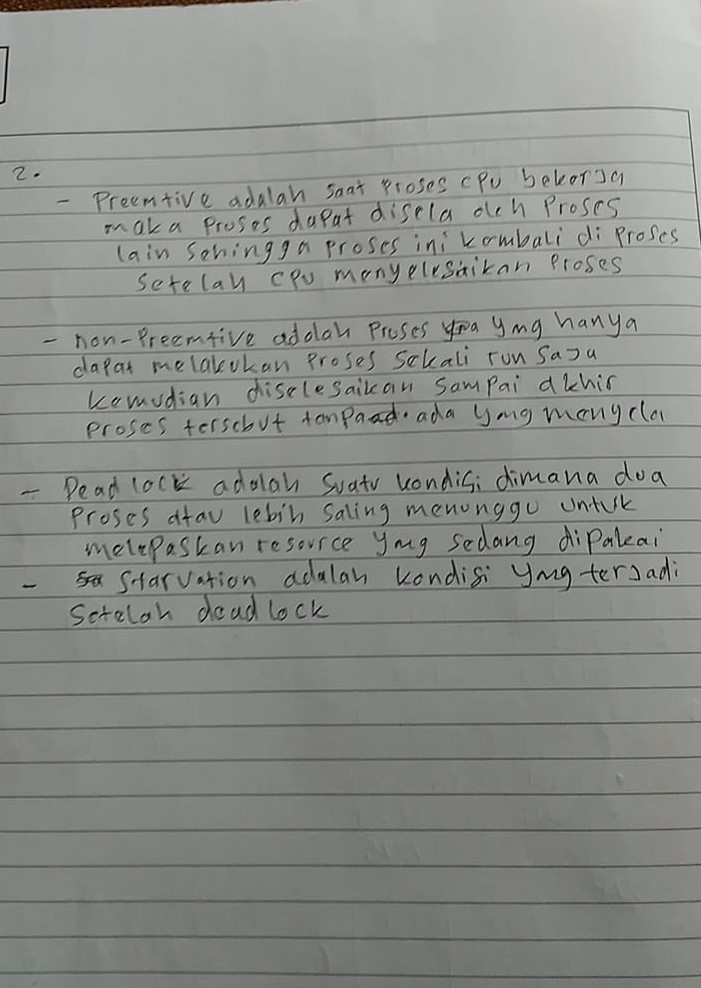 2.
- Preemtive adalah saat proses CPU bekerja
maka proses dapat disela oleh proses
lain sehingga proses ini kembali di proses
setelah CPU menyelesaikan proses
- non-Preemtive adalah proses yang hanya
dapat melakukan proses sekali run saja
kemudian diselesaikan sampai akhir
proses tersebut tanpa ada yang menyela
- Dead lock adalah suatu kondisi dimana dua
proses atau lebih saling menunggu untuk
melepaskan resource yang sedang dipakai
- Starvation adalah kondisi yang terjadi
setelah dead lock